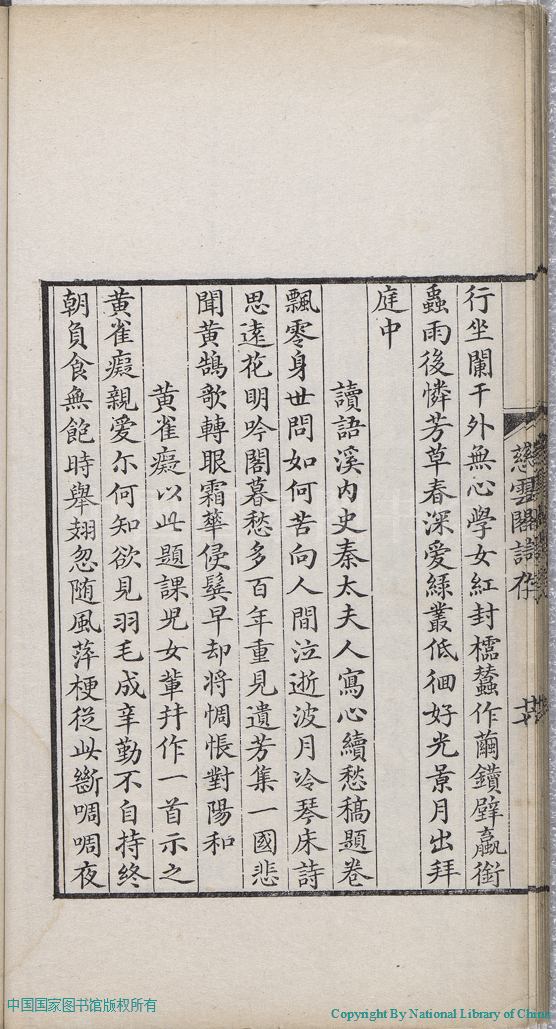 行坐闌干外無心學女紅封檽蠶作繭鑽壁蠃銜
蟲雨後憐芳草春深愛綠叢低徊好光景月出拜
庭中
讀語溪内史秦太夫人寫心續愁稿題卷
飄零身世問如何苦向人間泣逝波月冷琴床詩
思遠花明吟閣暮愁多百年重見遺芳集一國悲
聞黄鵠歌轉眼霜華侵鬓早却將惆悵對陽和
黄雀癡以此題課兒女輩幷作一首示之
黄雀癡親愛尔何知欲見羽毛成辛勤不自持終
朝負食無飽時舉翅忽随風萍梗從此斷啁啁夜
慈雲閣詩存
廿
中国国家图书馆版权所有
Copyright By National Library of China